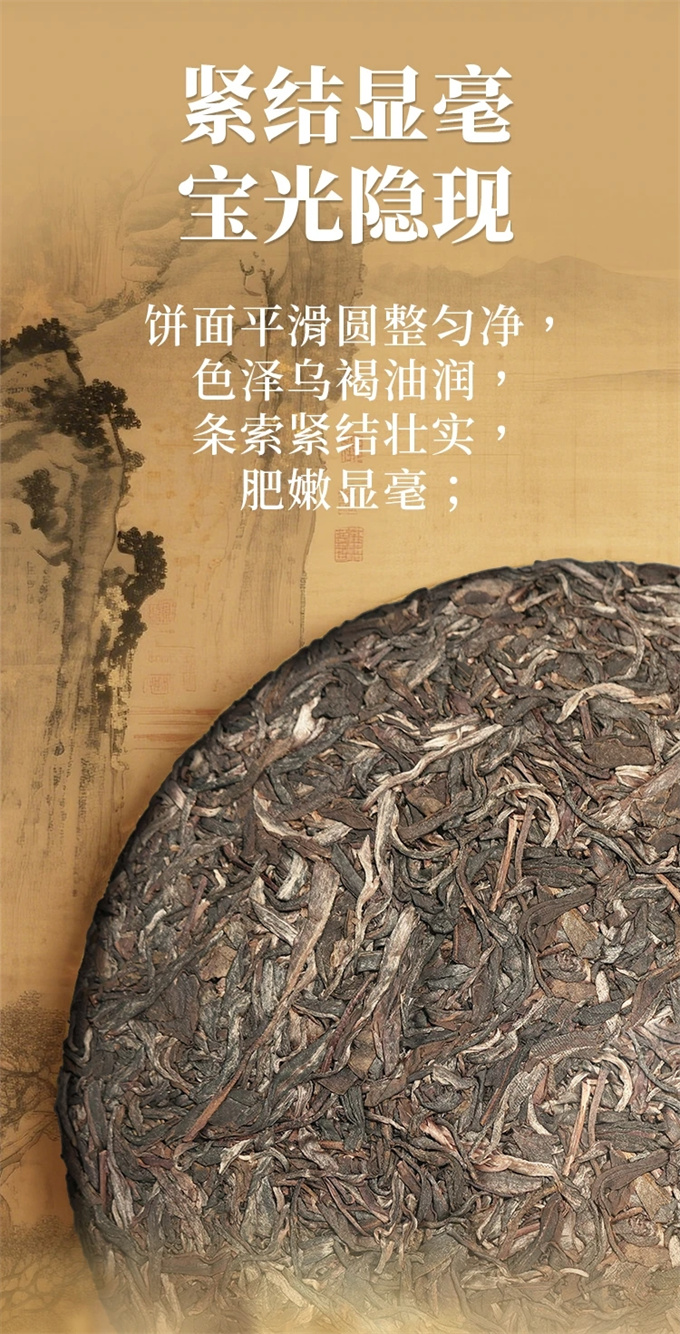 紧结显毫
宝光隐现
饼面平滑圆整匀净，
色泽乌褐油润，
条索紧结壮实，
肥嫩显毫；